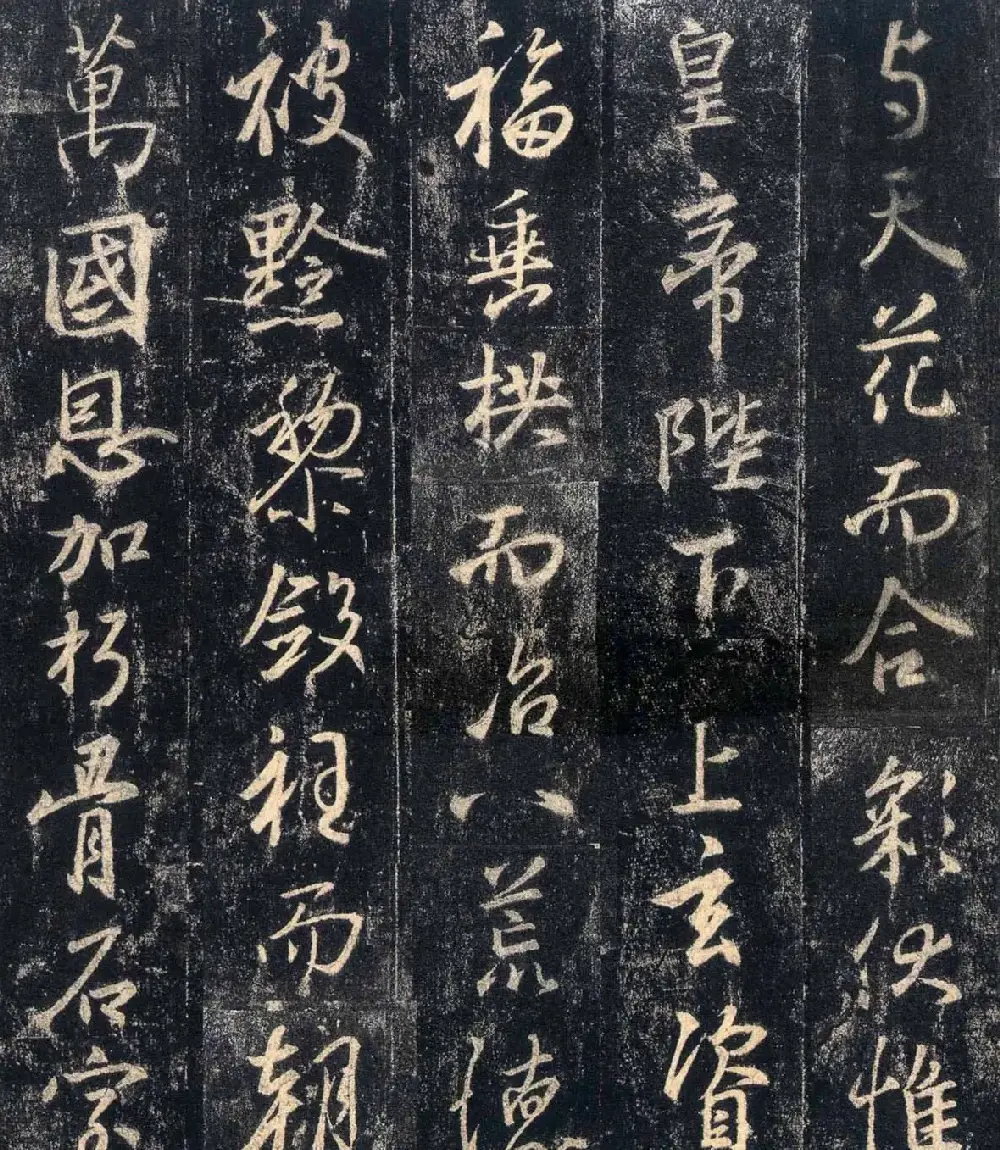 与天花而合彩伏惟
皇帝陛下上玄資
福垂拱而治八荒德
被黔黎斂衽而朝
萬國恩加朽骨石字